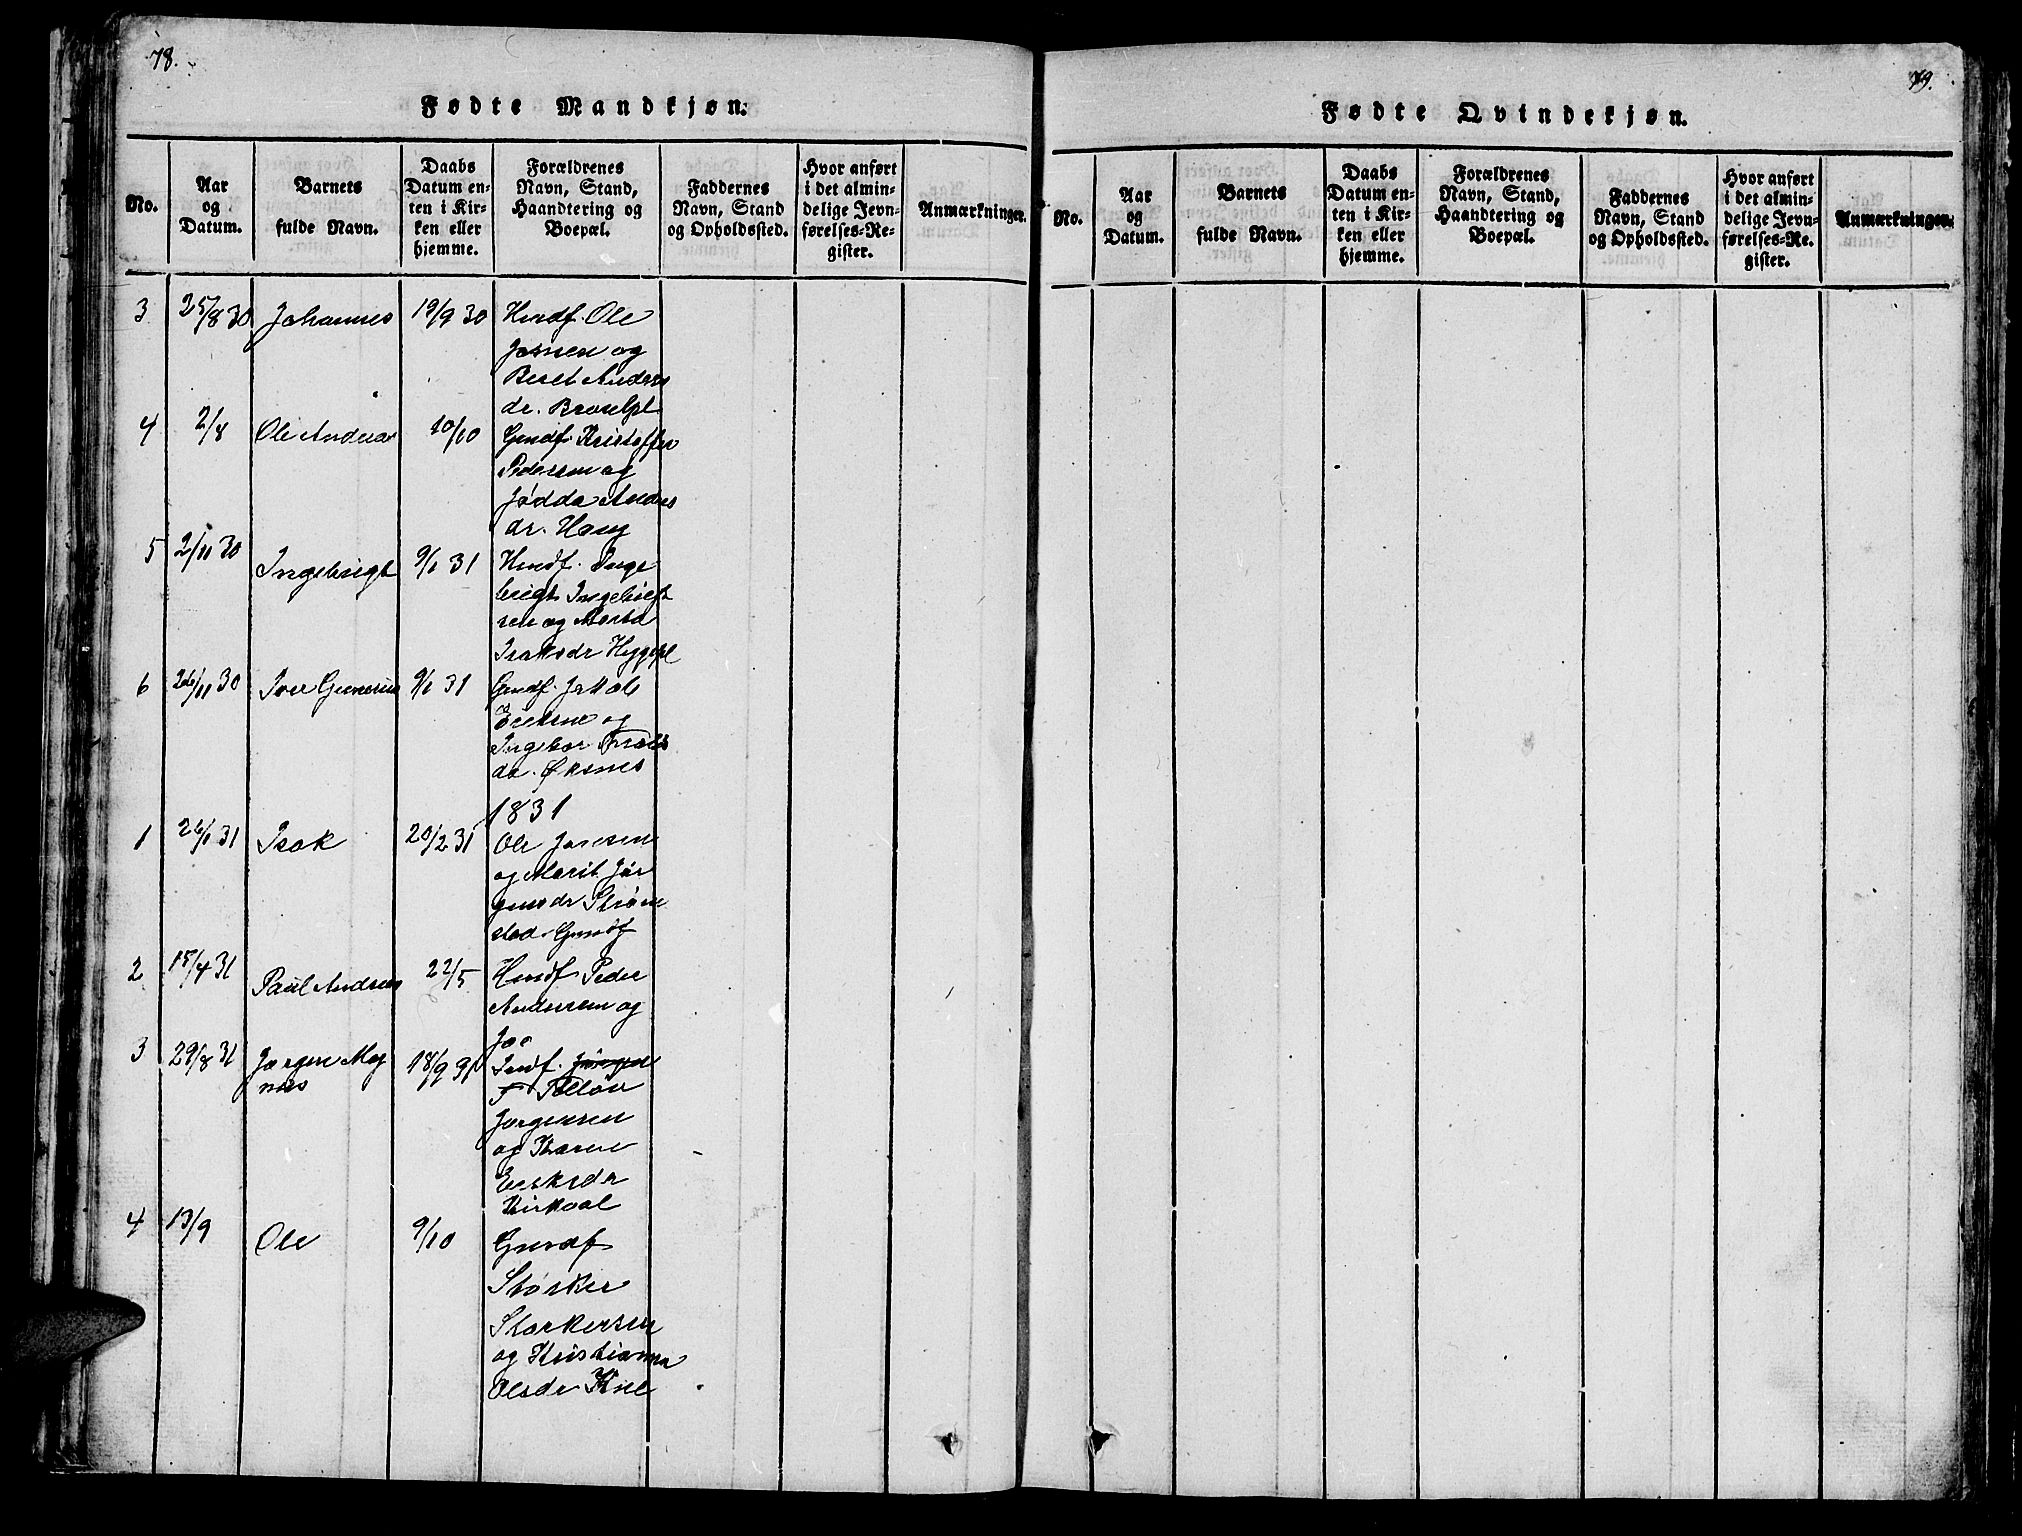 78.
Fødte Mandkjøn.
No.
Aar
og
Datum.
Barnets
fulde Navn.
Daabs
Datum en-
ten i Kir-
ken eller
hjemme.
Forældrenes
Navn, Stand,
Haandtering og
Boepæl.
Faddernes
Navn, Stand
og Opholdssted.
Hvor anført
i det almin-
delige Jevn-
førelses-Re-
gister.
Anmærkninger.
3 25/8 30 Johannes 19/9 30 Hmdf. Ole
Jonsen og
Beret Anders
dr.
4 2/8 Ole Andreas 10/10 Gmdf. Kristoffer
Pedersen og
Jødda Anders
dr. Haug
5 2/11 30 Ingebrigt 9/1 31 Hmdf. Inge
brigt Ingebrigt
sen og Marta
Isaksdr Hyggepl
6 26/11 30 Iver Gunerius 9/1 31 Gmdf. Jakob
Eriksen og
Ingebor
dr. Øksnes
1831
1 26/1 31 Isak 20/2 31 Ole Jonsen
og Marit Jør
gensdr Strøm
stad. Gmdf
2 15/4 31 Paul Andreas 22/5 Hmdf Peder
Andersen og
3 29/8 31 Jørgen Mag
nus 18/9 31 Indf. Jørgen
Jørgensen
og Karen
Eriksdr
Kirkvaal
4 13/9 Ole 9/10 Gmdf
Størker
Størkersen
og Kristianna
Olsdr
79.
Fødte Qvindekjøn.
No.
Aar
og
Datum.
Barnets
fulde Navn.
Daabs
Datum en-
ten i Kir-
ken eller
hjemme.
Forældrenes
Navn, Stand,
Haandtering og
Boepæl.
Faddernes
Navn, Stand
og Opholdssted.
Hvor anført
i det almin-
delige Jevn-
førelses-Re-
gister.
Anmærkninger.